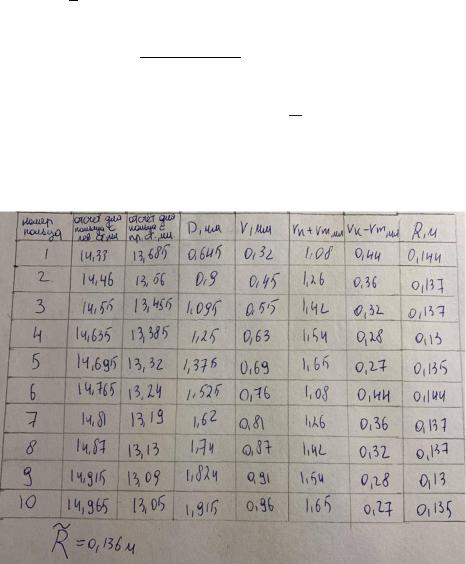 номер кольца отсчет для кольца с лев. ст., мм отсчет для кольца с пр. ст., мм D, мм r, мм rk+rm, мм rk-rm, мм R, м
1 14,33 13,685 0,645 0,32 1,08 0,44 0,144
2 14,46 13,56 0,9 0,45 1,26 0,36 0,137
3 14,55 13,455 1,095 0,55 1,42 0,32 0,137
4 14,635 13,385 1,25 0,63 1,54 0,28 0,13
5 14,695 13,32 1,375 0,69 1,65 0,27 0,135
6 14,765 13,24 1,525 0,76 1,08 0,44 0,144
7 14,81 13,19 1,62 0,81 1,26 0,36 0,137
8 14,87 13,13 1,74 0,87 1,42 0,32 0,137
9 14,915 13,09 1,824 0,91 1,54 0,28 0,13
10 14,965 13,05 1,915 0,96 1,65 0,27 0,135
R̃ = 0,136 м